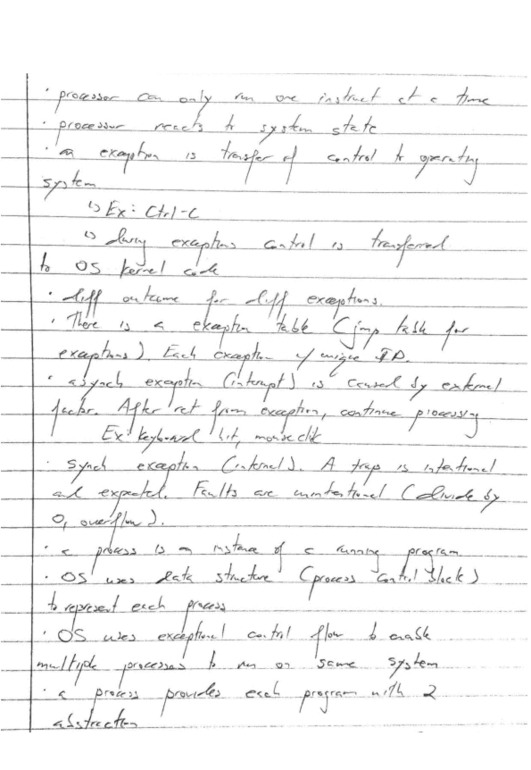 · processor can only run one instruct at a time
· processor reacts to system state
· an exception is transfer of control to operating
system
↳ Ex: Ctrl-C
↳ during exceptions control is transferred
to OS kernel code
· diff outcome for diff exceptions.
· There is a exception table (jmp table for
exceptions). Each exception w/ unique ID.
· asynch exception (interrupt) is caused by external
factor. After ret from exception, continue processing
Ex: keyboard hit, mouse clik
· synch exception (internal). A trap is intentional
and expected. Faults are unintentional (divide by
0, overflow).
· a process is an instance of a running program
· OS uses data structure (process control block)
to represent each process
· OS uses exceptional control flow to enable
multiple processes to run on same system
· a process provides each program with 2
abstraction